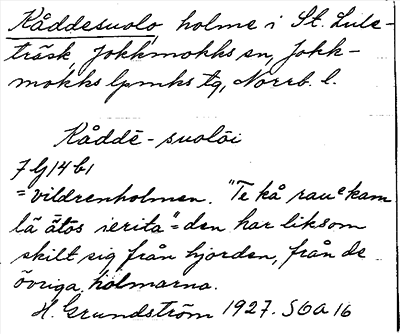 Kåddesuolo, holme i St. Lule-
träsk, Jokkmokks sn, Jokk-
mokks lpmks tg, Norrb. l.
Kåddē-suolōi
7G14b1
="vildrenholmen. "Te kå rauᵉkam
lä ätos ierita"=den har liksom
skilt sig från hjorden, från de
övriga holmarna.
H. Grundström 1927. SOA 16